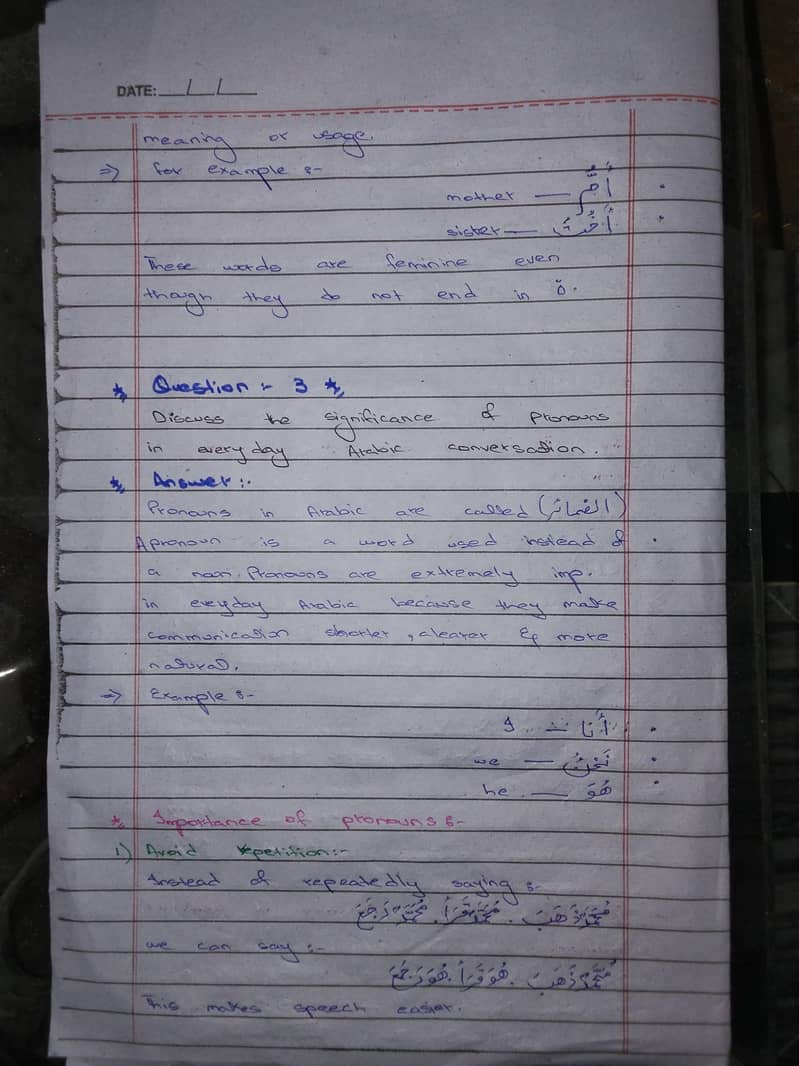 DATE: __/__/__
meaning or usage.
⇒ for example :-
mother — أُمٌّ •
sister — أُخْتٌ •
These words are feminine even
though they do not end in ة.
* Question :- 3 *
Discuss the significance of pronouns
in everyday Arabic conversation.
* Answer :-
Pronouns in Arabic are called (الضمائر)
A pronoun is a word used instead of •
a noun. Pronouns are extremely imp.
in everyday Arabic because they make
communication shorter, clearer & more
natural.
⇒ Example :-
I — أَنَا •
we — نَحْنُ •
he — هُوَ •
* Importance of pronouns :-
1) Avoid repetition:-
Instead of repeatedly saying :-
مُحَمَّدٌ ذَهَبَ. مُحَمَّدٌ قَرَأَ. مُحَمَّدٌ رَجَعَ
we can say :-
مُحَمَّدٌ ذَهَبَ. هُوَ قَرَأَ. هُوَ رَجَعَ
This makes speech easier.